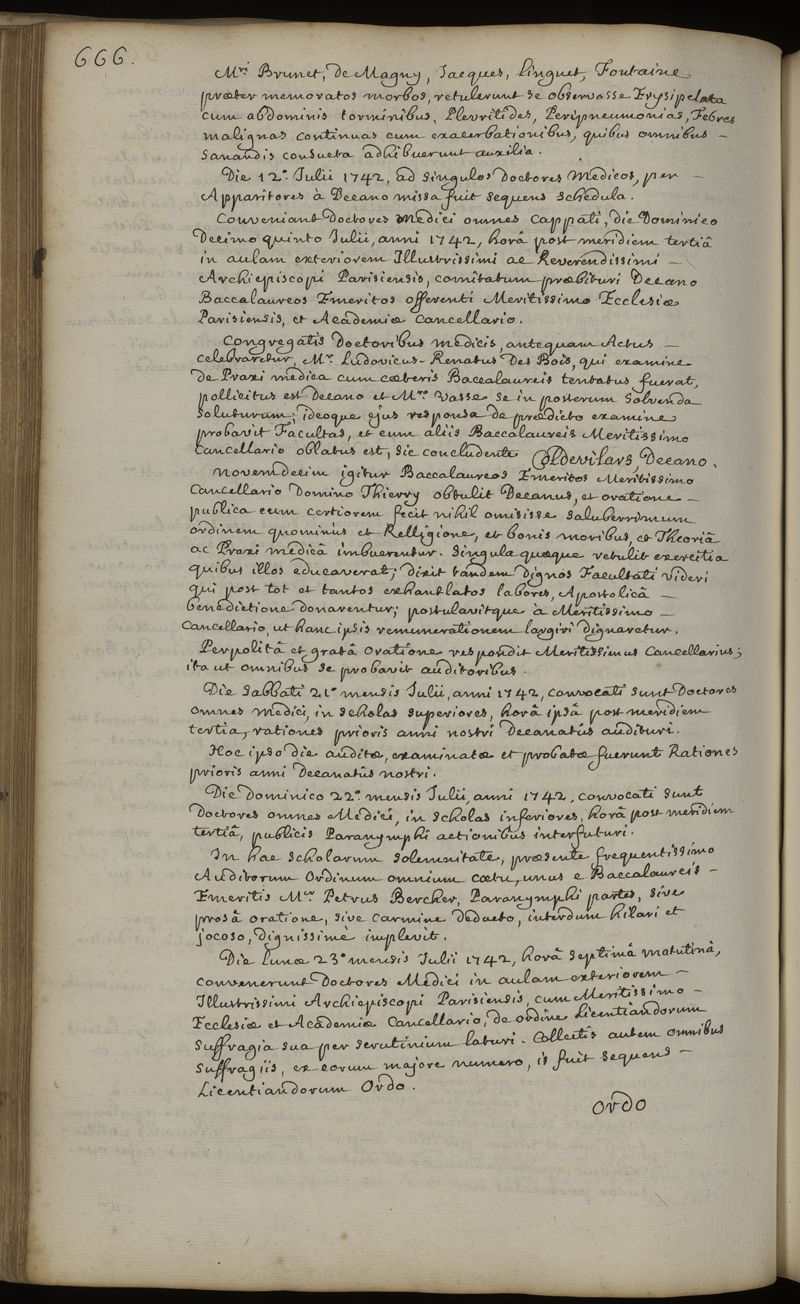 666.
M.ri Brunet, de Magny, Jacques, Linguet, Fontaine
præter memoratos morbos, retulerunt se observasse Erysipelata
cum abdominis torminibus, Plevritides, Peripneumonias, Febres
malignas continuas cum exacerbationibus, quibus omnibus –
sanandis consueta adhibuerunt auxilia.
Die 12.a Julii 1742, ad singulos Doctores Medicos, per –
Apparitores à Decano missa fuit sequens schedula.
Conveniant Doctores Medici omnes Cappati, die Dominico
Decimo quinto Julii, anni 1742, horâ post meridiem tertiâ
in aulam exteriorem Illustrissimi ac Reverendissimi –
Archiepiscopi Parisiensis, comitatum præbituri Decano
Baccalaureos Emeritos offerenti Meritissimo Ecclesiæ
Parisiensis, et Academiæ Cancellario.
Congregatis Doctoribus medicis, antequam Actus –
celebraretur, M.r Ludovicus-Renatus Des Bois, qui examine
de Praxi medica cum cæteris Baccalaureis tentatus fuerat,
pollicitus est Decano et M.ro Vasse se in posterum solvenda
soluturum; ideoque ejus responsa de prædicto examine
probavit Facultas, et cum aliis Baccalaureis Meritissimo
Cancellario oblatus est, sic concludente Col de vilars, Decano.
Novemdecim igitur Baccalaureos Emeritos Meritissimo
Cancellario Domino Thierry obtulit Decanus, et oratione –
publica eum certiorem fecit nihil omisisse saluberrimum
ordinem quominùs et Relligione, et bonis moribus, et Theoriâ
ac Praxi medicâ imbuerentur. Singula quoque retulit exercitia
quibus illos educaverat; dixit tandem dignos Facultati videri
qui post tot et tantos exhantlatos labores, Apostolicâ –
benedictione donarentur; postulavitque à Meritissimo –
Cancellario, ut hanc ipsis remunerationem largiri dignaretur.
Perpolitâ et gratâ oratione respondit Meritissimus Cancellarius;
ita ut omnibus se probavit auditoribus.
Die Sabbati 21.a mensis Julii, anni 1742, convocati sunt Doctores
omnes medici, in scholas superiores, horâ ipsâ post meridiem
tertia, rationes prioris anni nostri Decanatûs audituri.
Hoc ipso die auditæ, examinatæ et probatæ fuerunt Rationes
prioris anni Decanatûs nostri.
Die Dominico 22.a mensis Julii, anni 1742, convocati sunt
Doctores omnes Medici, in scholas inferiores, horâ post meridiem
tertiâ, publicis Paranymphi actionibus interfuturi.
In hac scholarum solemnitate, præsente frequentissimo
Auditorum Ordinum omnium cœtu, unus e Baccalaureis –
Emeritis M.er Petrus Bercher, Paranymphi partes, sive
prosâ oratione, sive carmine deducto, interdum hilari et
jocoso, dignissimè implevit.
Die Lunæ 23.a mensis Julii 1742, horâ septimâ matutinâ,
convenerunt Doctores Medici in aulam exteriorem –
Illustrissimi Archiepiscopi Parisiensis, cum Meritissimo –
Ecclesiæ et Academiæ Cancellario, de ordine Licentiandorum
suffragia sua per scrutinium laturi. Collectis autem omnibus
suffragiis, ex eorum majore numero, is fuit sequens –
Licentiandorum Ordo.
Ordo